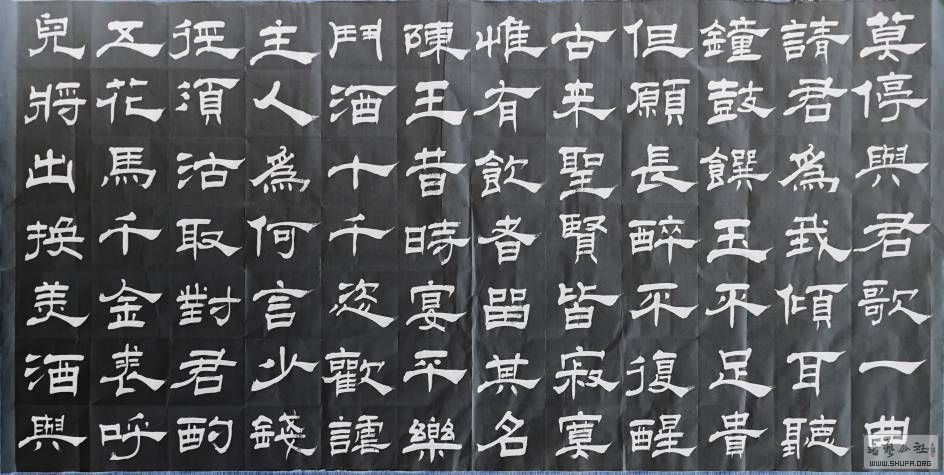 莫停與君歌一曲
請君為我傾耳聽
鐘鼓饌玉不足貴
但願長醉不復醒
古来聖賢皆寂寞
惟有飲者留其名
陳王昔時宴平樂
鬥酒十千恣歡謔
主人為何言少錢
徑須沽取對君酌
五花馬千金裘呼
兒將出換美酒與
WWW.SHUFA.ORG